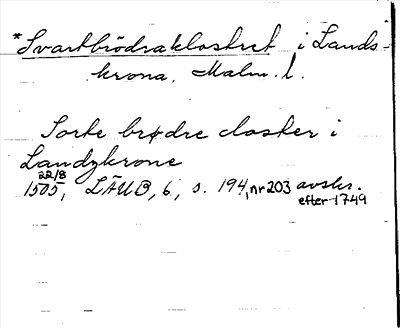 *Svartbrödraklostret i Lands-
krona, Malm. l.
Sorte brødre closter i
Landzkrone
22/8
1505, LÄUB, 6, s. 194, nr 203 avskr.
efter 1749